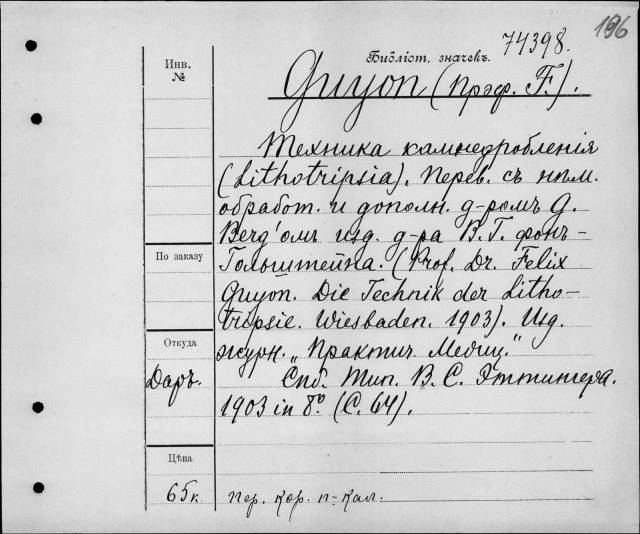 196
Библіот. значекъ.
74398.
Инв.
№
Guyon (проф. F.).
Техника камнедробленія
(Lithotripsia). Перев. съ нѣм.
обработ. и дополн. д-ромъ G.
Berg'омъ изд. д-ра В. Г. фонъ-
По заказу
Гольштейна. (Prof. Dr. Felix
Guyon. Die Technik der Litho-
tripsie. Wiesbaden. 1903). Изд.
Откуда
журн. „Практич. Медиц."
Даръ.
Спб. Тип. В. С. Эттингера.
1903 in 8º. (С. 64).
Цѣва
65 к.
пер. кор. п-кал.